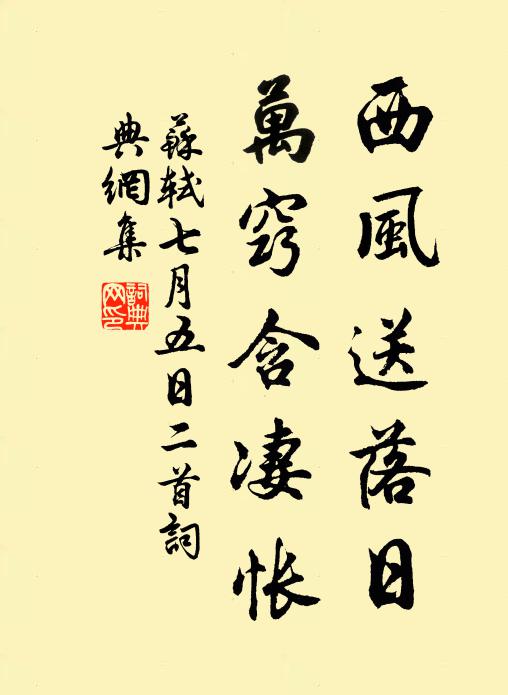 西風送落日
萬竅含淒悵
蘇軾七月五日二首詞
典網集
詞典網印